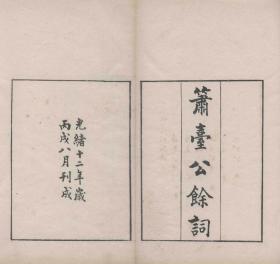 簫臺公餘詞
光緒十二年歲
丙戌八月刊成